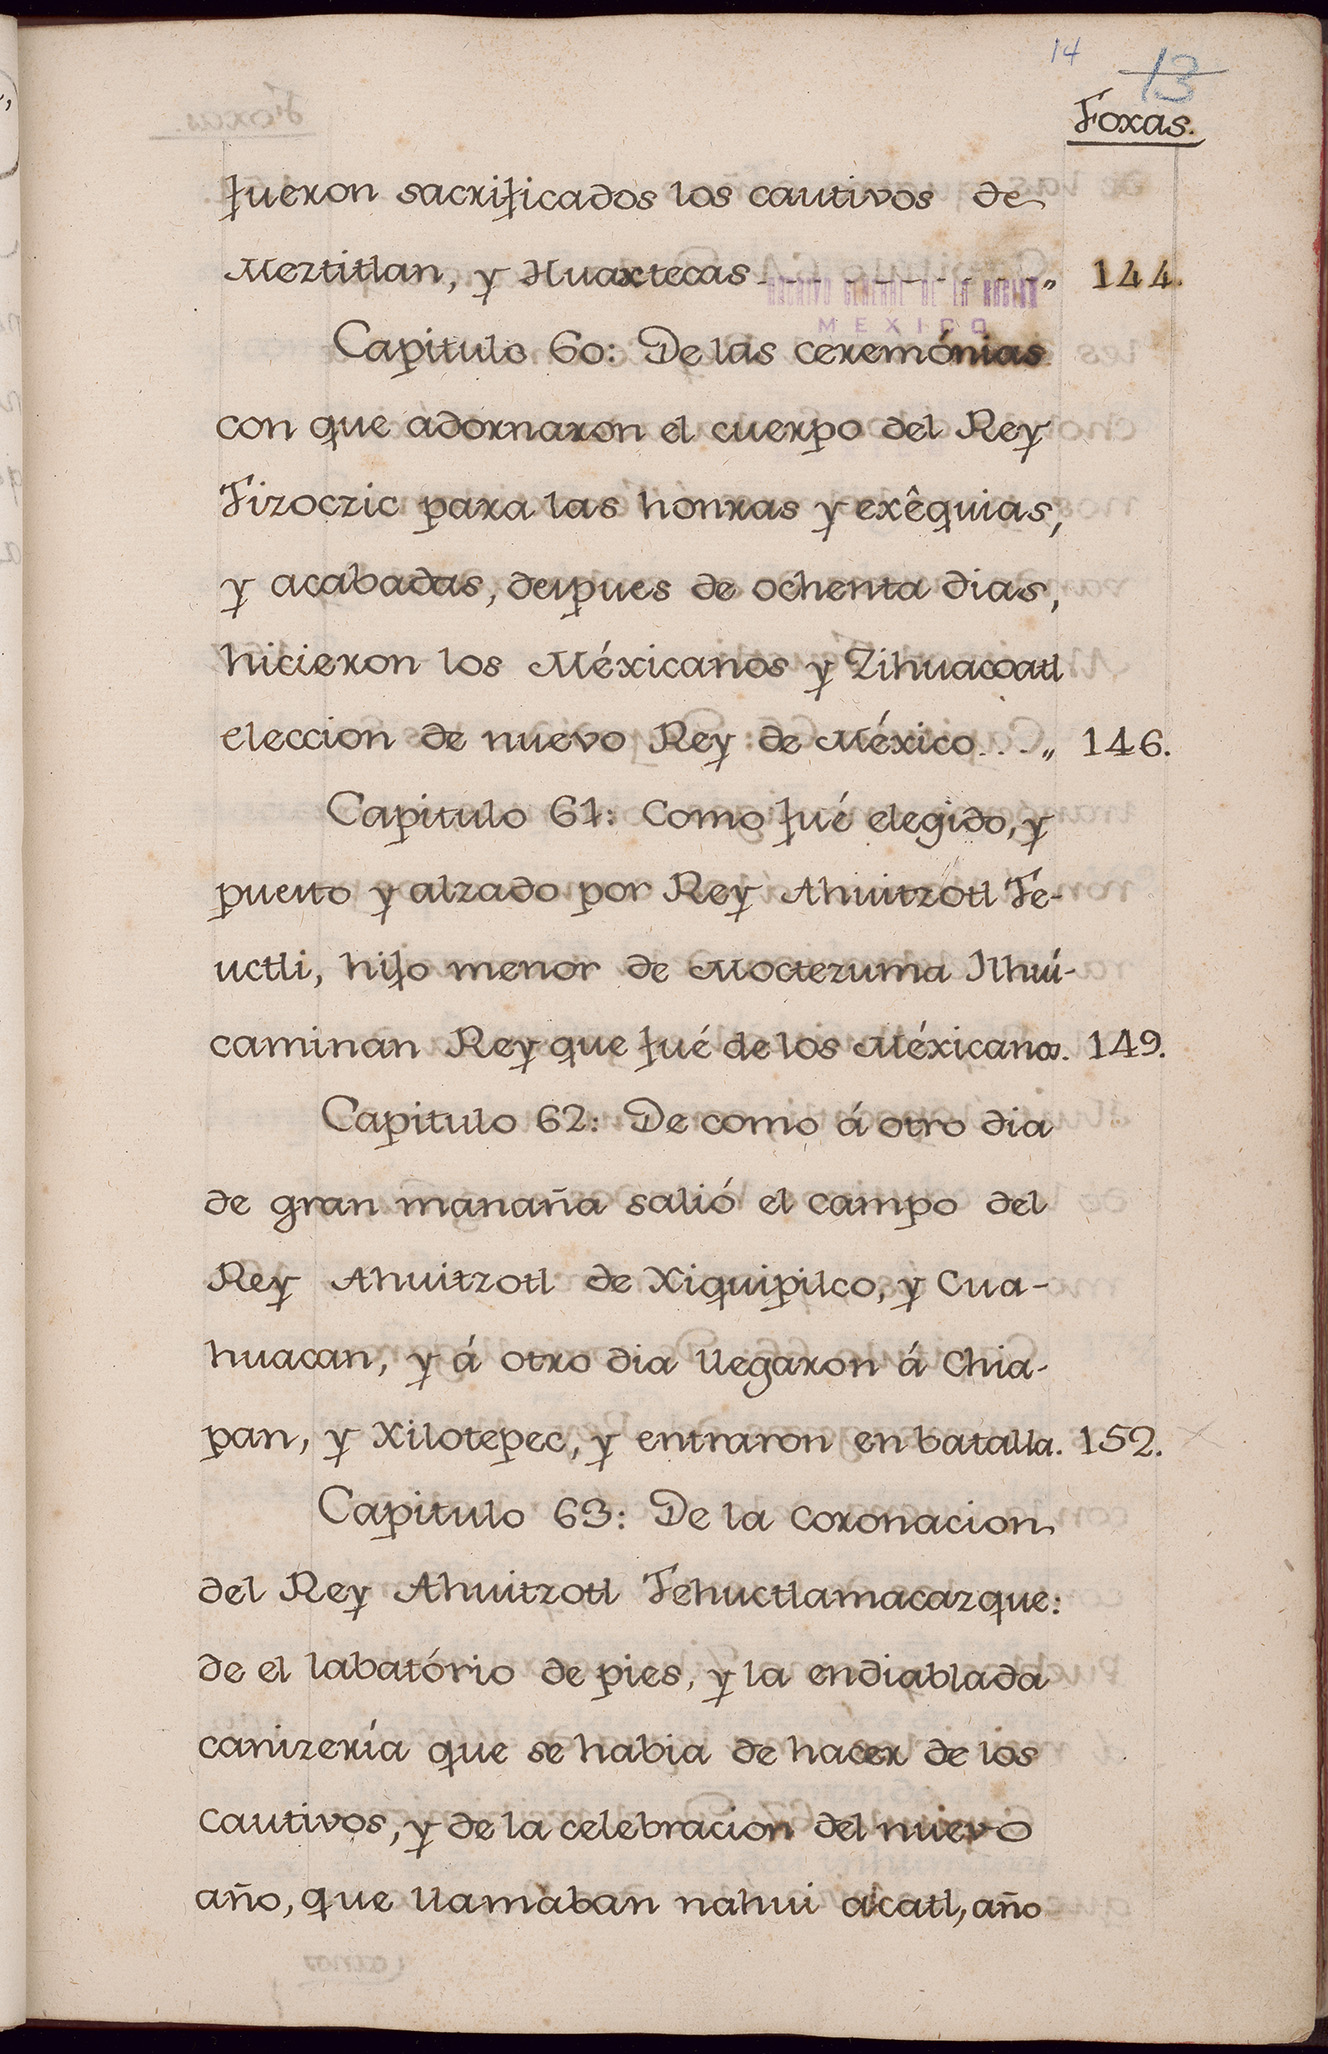 14 13
Foxas.
fueron sacrificados los cautivos de
Meztitlan, y Huaxtecas . . . . . . . . . . „ 144.
ARCHIVO GENERAL DE LA NACION
MEXICO
Capitulo 60: De las ceremónias
con que adornaron el cuerpo del Rey
Tizoczic para las honras y exêquias,
y acabadas, despues de ochenta dias,
hicieron los Méxicanos y Zihuacoatl
eleccion de nuevo Rey de México . . . „ 146.
Capitulo 61: Como fué elegido, y
puesto y alzado por Rey Ahuitzotl Te-
uctli, hijo menor de Moctezuma Ilhuí-
caminan Rey que fué de los Méxicanos. 149.
Capitulo 62: De como á otro dia
de gran manaña salió el campo del
Rey Ahuitzotl de Xiquipilco, y Cua-
huacan, y á otro dia llegaron á Chia-
pan, y Xilotepec, y entraron en batalla. 152.
Capitulo 63: De la coronacion
del Rey Ahuitzotl Tehuctlamacazque:
de el labatório de pies, y la endiablada
canizería que se habia de hacer de los
cautivos, y de la celebracion del nuevo
año, que llamaban nahui acatl, año